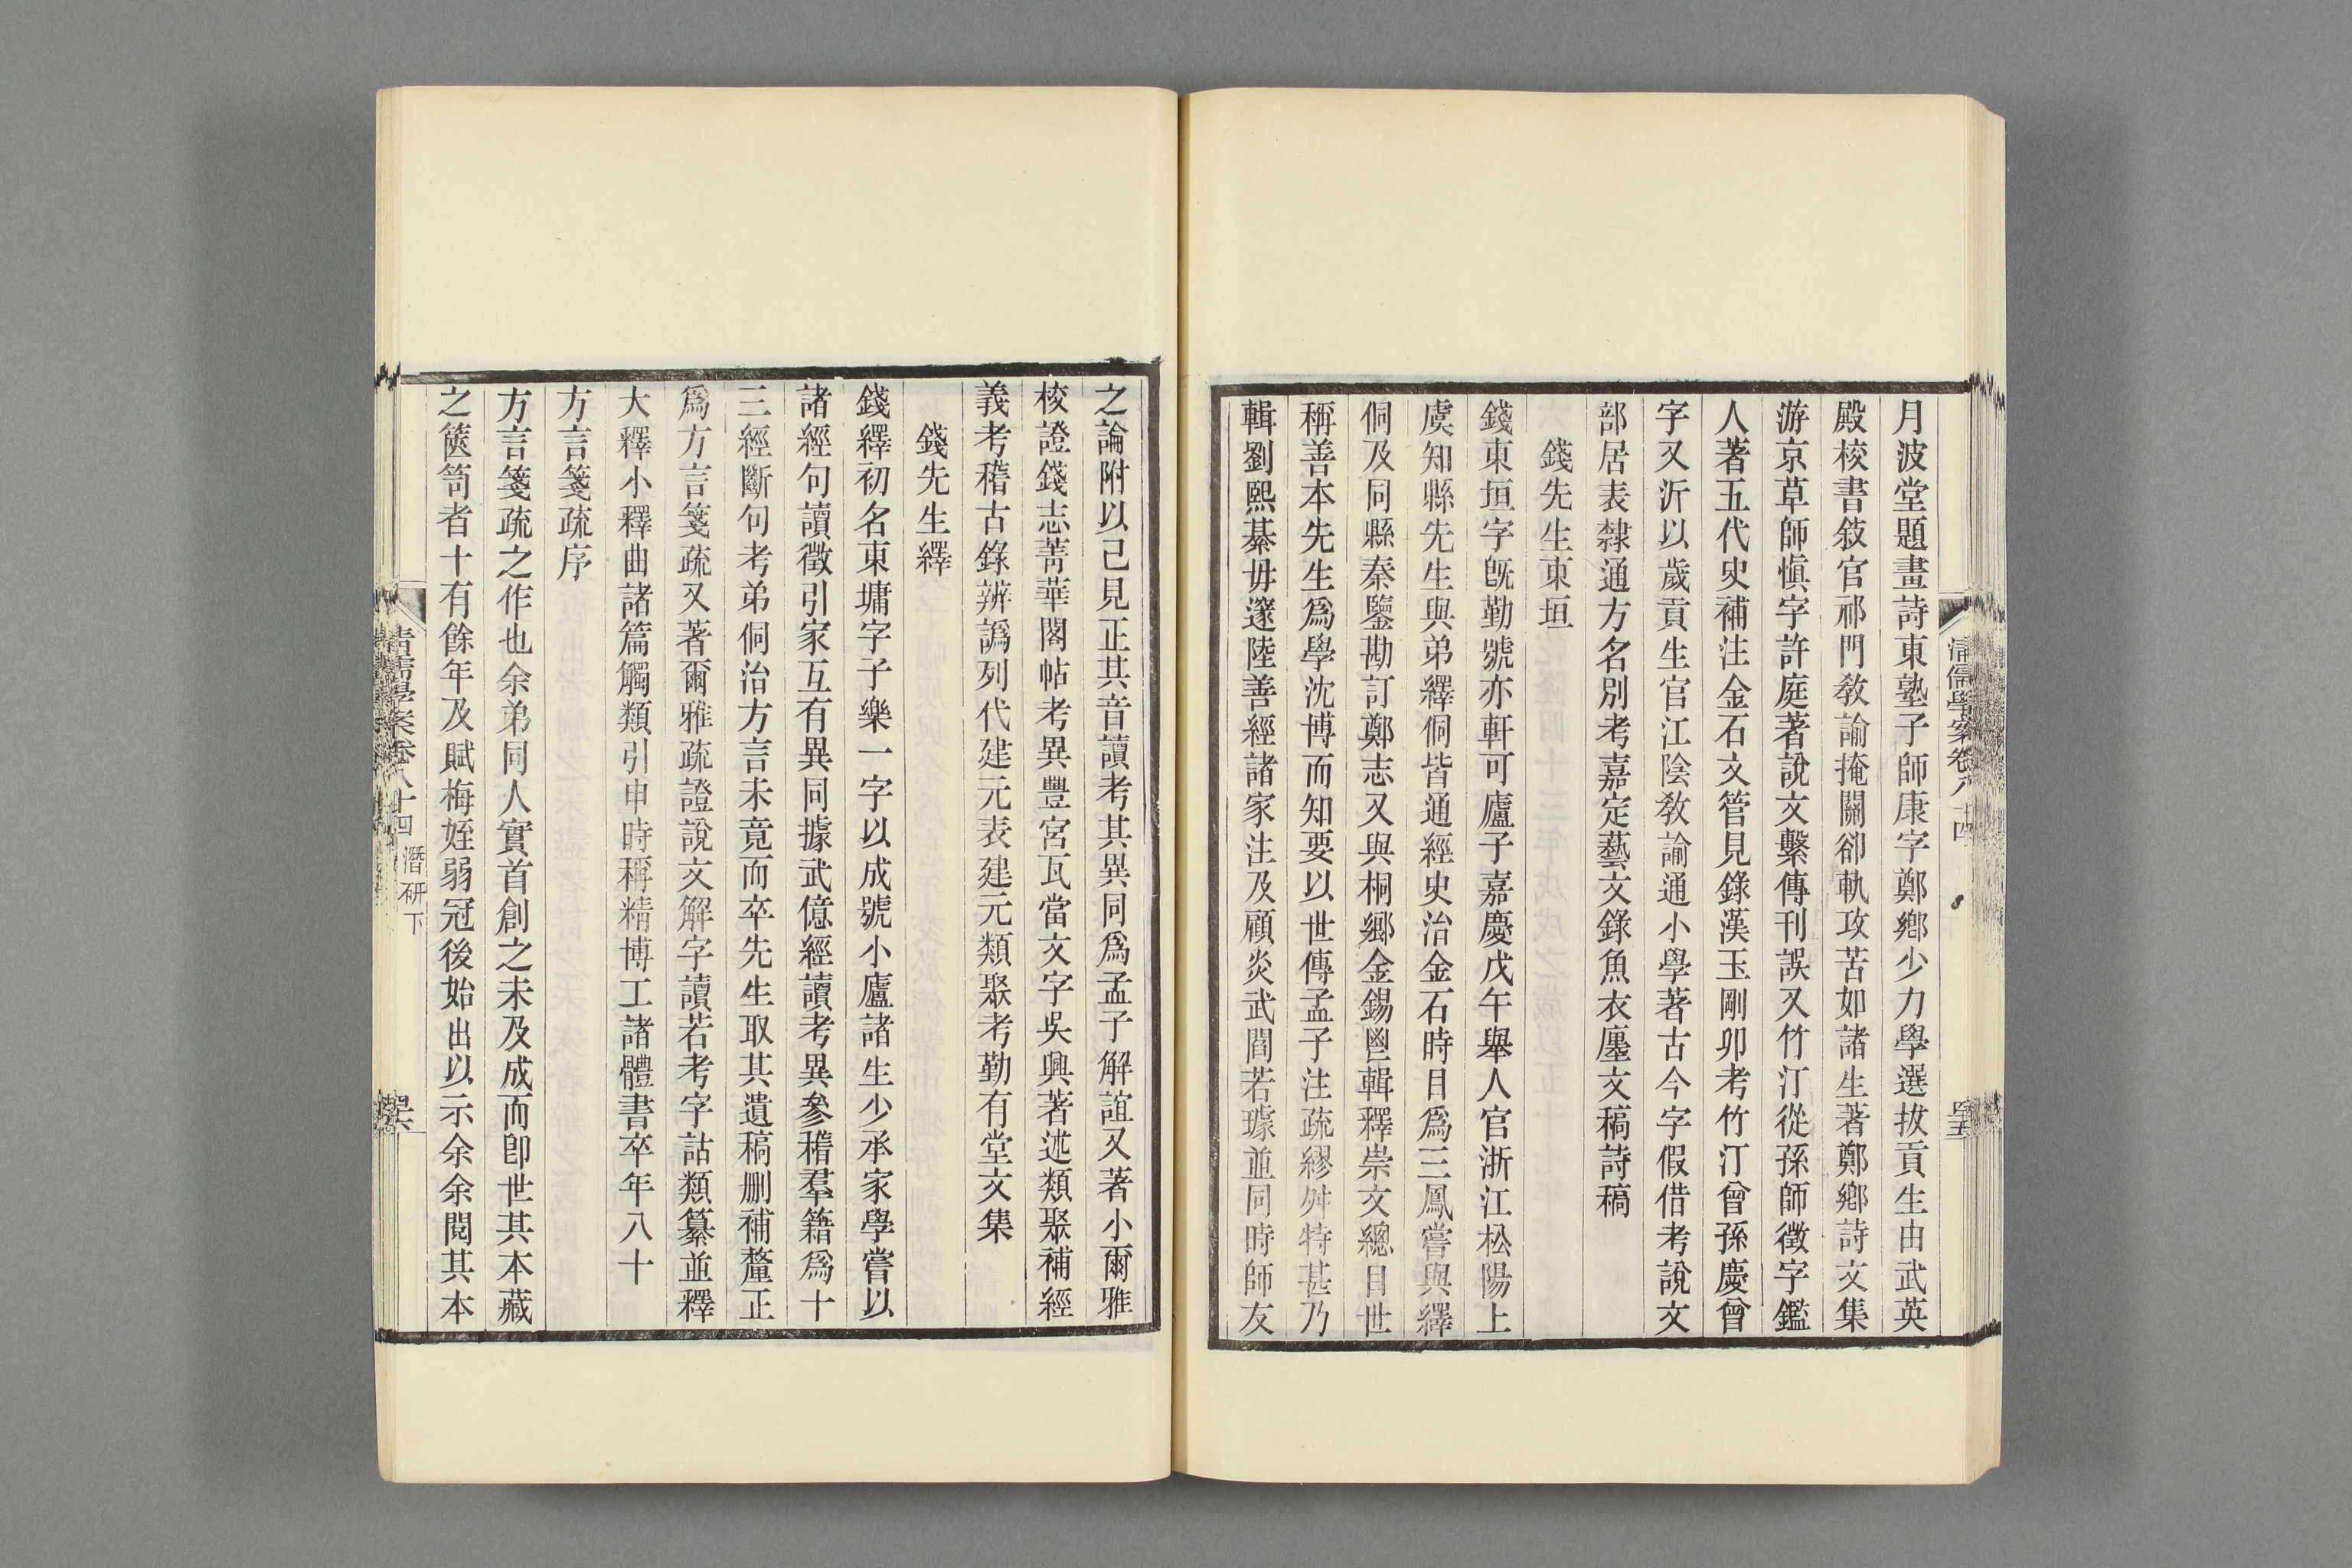 月波堂題畫詩東塾子師康字鄭鄉少力學選拔貢生由武英
殿校書敍官祁門敎諭掩關卻軌攻苦如諸生著鄭鄉詩文集
游京草師愼字許庭著說文繫傳刊誤又竹汀從孫師徵字鑑
人著五代史補注金石文管見錄漢玉剛卯考竹汀曾孫慶曾
字又沂以歲貢生官江陰敎諭通小學著古今字假借考說文
部居表隸通方名別考嘉定藝文錄魚衣廛文稿詩稿
錢先生東垣
錢東垣字旣勤號亦軒可廬子嘉慶戊午舉人官浙江松陽上
虞知縣先生與弟繹侗皆通經史治金石時目爲三鳳嘗與繹
侗及同縣秦鑒勘訂鄭志又與桐鄉金錫鬯輯釋崇文總目世
稱善本先生爲學沈博而知要以世傳孟子注疏繆舛特甚乃
輯劉熙綦毋邃陸善經諸家注及顧炎武閻若璩並同時師友
清儒學案卷八十四
之論附以己見正其音讀考其異同爲孟子解誼又著小爾雅
校證錢志菁華閣帖考異豐宮瓦當文字吳興著述類聚補經
義考稽古錄辨譌列代建元表建元類聚考勤有堂文集
錢先生繹
錢繹初名東墉字子樂一字以成號小廬諸生少承家學嘗以
諸經句讀徵引家互有異同據武億經讀考異參稽羣籍爲十
三經斷句考弟侗治方言未竟而卒先生取其遺稿刪補釐正
爲方言箋疏又著爾雅疏證說文解字讀若考字詁類纂並釋
大釋小釋曲諸篇觸類引申時稱精博工諸體書卒年八十
方言箋疏序
方言箋疏之作也余弟同人實首創之未及成而卽世其本藏
之篋笥者十有餘年及賦梅姪弱冠後始出以示余余閱其本
清儒學案卷八十四 潛研下